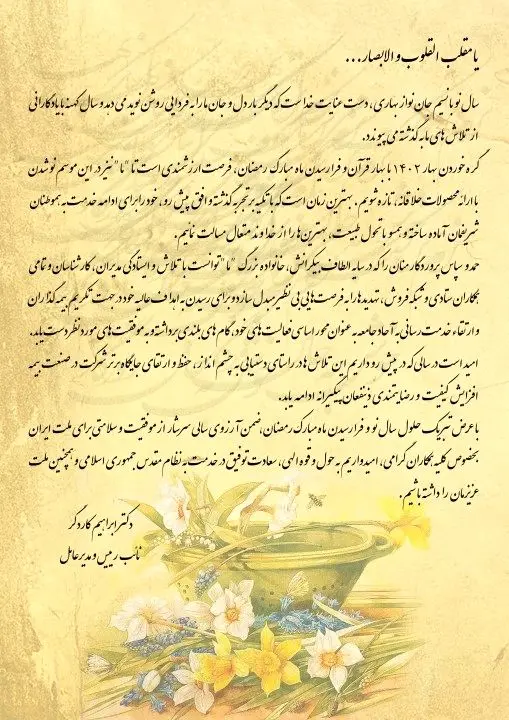 یا مقلب القلوب و الابصار ...
سال نو با نسیم جان نواز بهاری، دست عنایت خداست که دیگر بار دل و جان ما را به فردایی روشن نوید می دهد و سال کهنه با یادگارانی
از تلاش های ما به گذشته می پیوندد.
گره خوردن بهار ۱۴۰۲ با بهار قرآن و فرارسیدن ماه مبارک رمضان، فرصت ارزشمندی است تا "ما" نیز در این موسم نو شدن
با ارائه محصولات خلاقانه، تازه شویم. بهترین زمان است که با تکیه بر تجربه گذشته و افق پیش رو، خود را برای ادامه خدمت به هموطنان
شریفمان آماده ساخته و همسو با تحول طبیعت، بهترین ها را از خداوند متعال مسالت نمائیم.
حمد و سپاس پروردگار منان را که در سایه الطاف بیکرانش، خانواده بزرگ "ما" توانست با تلاش و ایستادگی مدیران، کارشناسان و تمامی
همکاران ستادی و شبکه فروش، تهدیدها را به فرصت هایی بی نظیر مبدل سازد و برای رسیدن به اهداف عالیه خود در جهت تکریم بیمه گذاران
و ارتقاء خدمت رسانی به آحاد جامعه به عنوان محور اساسی فعالیت های خود، گام های بلندی برداشته و به موفقیت های مورد نظر دست یابد.
امید است در سالی که در پیش رو داریم این تلاش ها در راستای دستیابی به چشم انداز، حفظ و ارتقای جایگاه برتر شرکت در صنعت بیمه
افزایش کیفیت و رضایتمندی ذینفعان پیگیرانه ادامه یابد.
با عرض تبریک حلول سال نو و فرارسیدن ماه مبارک رمضان، ضمن آرزوی سالی سرشار از موفقیت و سلامتی برای ملت ایران
بخصوص کلیه همکاران گرامی، امیدواریم به حول و قوه الهی، سعادت توفیق در خدمت به نظام مقدس جمهوری اسلامی و همچنین ملت
عزیزمان را داشته باشیم.
دکتر ابراهیم کاردگر
نائب رییس و مدیرعامل